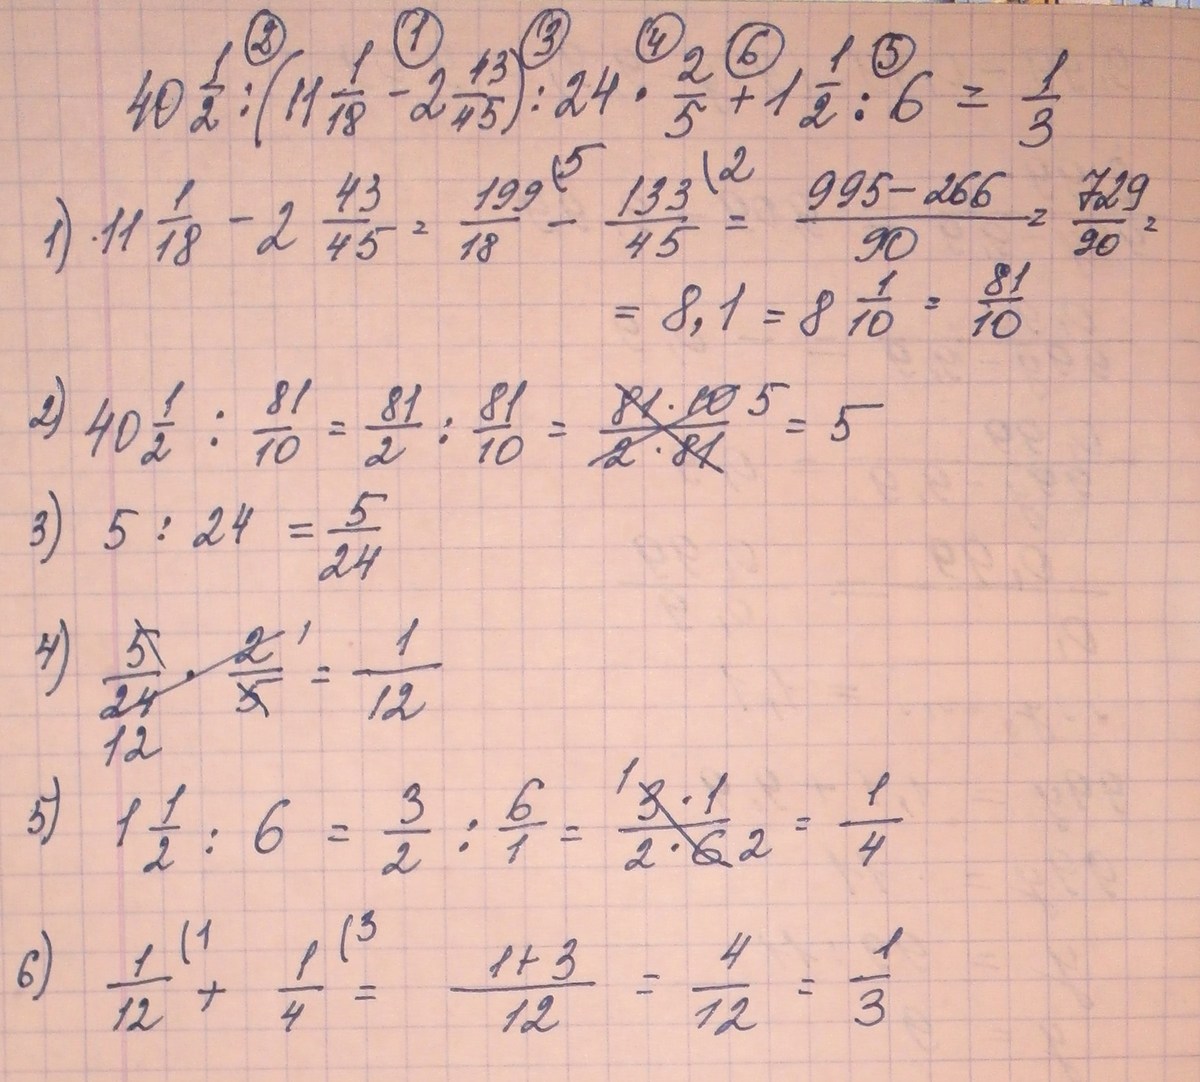 ② ① ③ ④ ⑥ ⑤
40 1/2 : (11 1/18 - 2 43/45) : 24 · 2/5 + 1 1/2 : 6 = 1/3
1) 11 1/18 - 2 43/45 = 199/18 (5 - 133/45 (2 = 995 - 266/90 = 729/90 =
= 8,1 = 8 1/10 = 81/10
2) 40 1/2 : 81/10 = 81/2 : 81/10 = 81 · 10/2 · 81 5 = 5
3) 5 : 24 = 5/24
4) 5/24 12 · 2/5 1 = 1/12
5) 1 1/2 : 6 = 3/2 : 6/1 = 1 3 · 1/2 · 6 2 = 1/4
6) 1/12 (1 + 1/4 (3 = 1+3/12 = 4/12 = 1/3